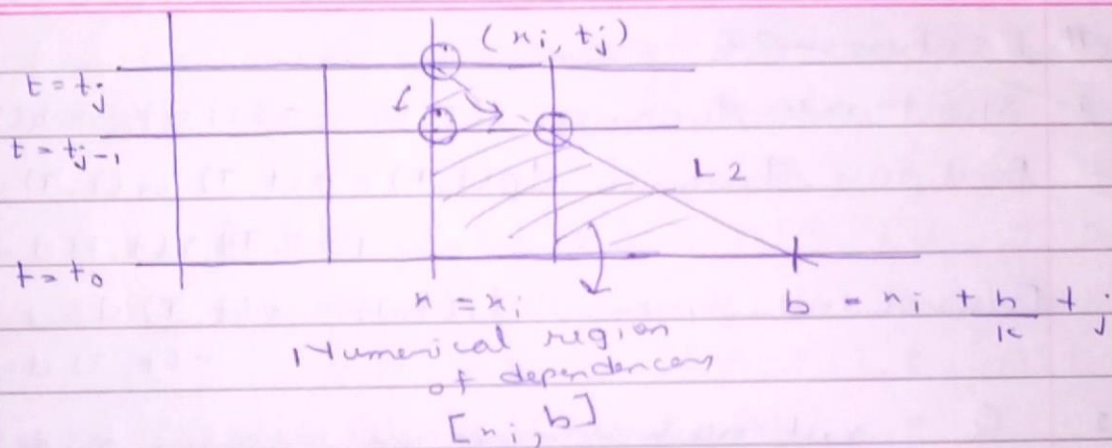 (xi, tj)
t = tj
t = tj-1
L2
t = t0
x = xi
b = xi + h/k tj
Numerical region
of dependency
[xi, b]